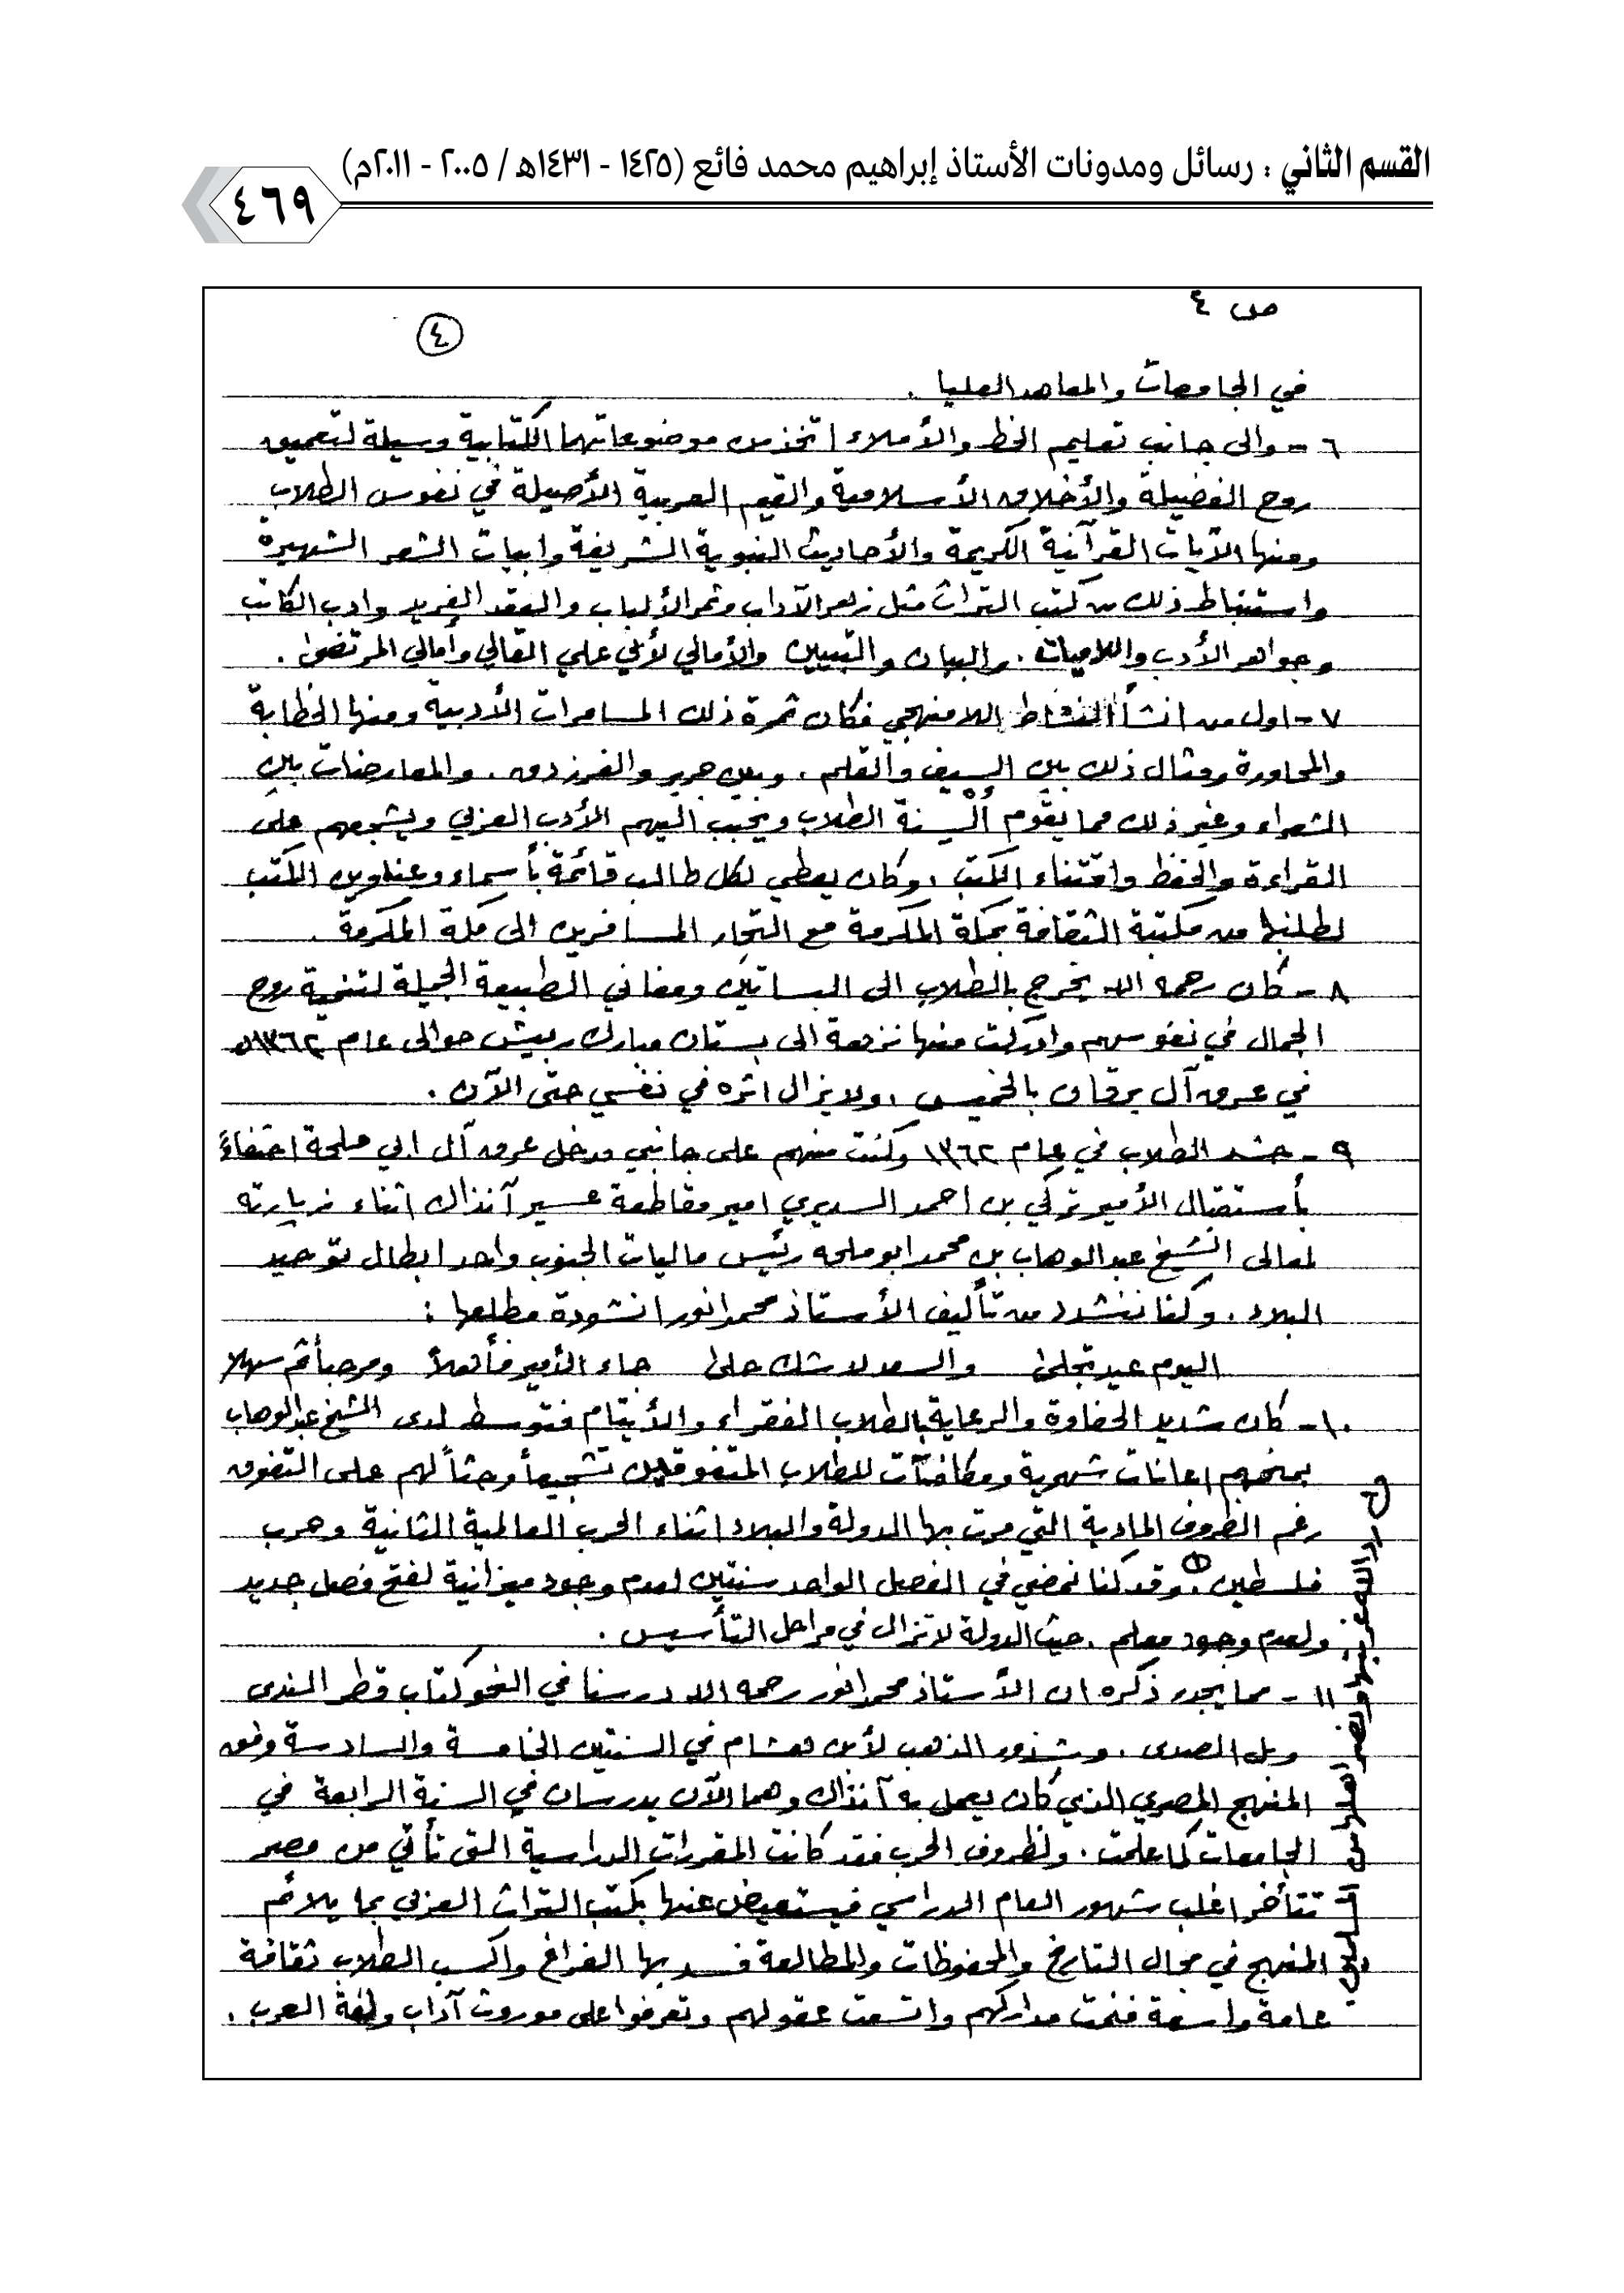 القسم الثاني : رسائل ومدونات الأستاذ إبراهيم محمد فائع (١٤٢٥ - ١٤٣١هـ / ٢٠٠٥ - ٢٠١١م)
٤٦٩
ص ٤
٤
في الجامعات والمعاهد العليا .
٦ - والى جانب تعليم الخط والأملاء اتخذ من موضوعاتهما الكتابية وسيلة لتعميق
روح الفضيلة والأخلاق الأسلامية والقيم العربية الأصيلة في نفوس الطلاب
ومنها الآيات القرآنية الكريمة والأحاديث النبوية الشريفة وابيات الشعر الشهيرة
واستنباط ذلك من كتب التراث مثل زهر الآداب وثمر الألباب والعقد الفريد وادب الكاتب
وجواهر الأدب واللاميات . والبيان والتبيين والأمالي لأبي علي القالي وأمالي المرتضى .
٧ - اول من انشأ النشاط اللامنهجي فكان ثمرة ذلك المسامرات الأدبية ومنها الخطابة
والمحاورة ومثال ذلك بين السيف والقلم . وبين جرير والفرزدق . والمعارضات بين
الشعراء وغير ذلك مما يقوم ألسنة الطلاب ويحبب اليهم الأدب العربي ويشجعهم على
القراءة والحفظ واقتناء الكتب . وكان يعطي لكل طالب قائمة بأسماء وعناوين الكتب
لطلبها من مكتبة الثقافة بمكة المكرمة مع التجار المسافرين الى مكة المكرمة .
٨ - كان رحمه الله يخرج بالطلاب الى البساتين ومغاني الطبيعة الجميلة لتنمية روح
الجمال في نفوسهم وادركت منها نزهة الى بستان مبارك ربيش حوالي عام ١٣٦٢هـ
في عرق آل يرقان بالخميس . ولا يزال اثره في نفسي حتى الآن .
٩ - حشد الطلاب في عام ١٣٦٢ وكنت منهم على جانبي مدخل عرق آل ابي ملحة احتفاءً
بأستقبال الأمير تركي بن احمد السديري امير مقاطعة عسير آنذاك اثناء زيارته
لمعالى الشيخ عبدالوهاب بن محمد ابو ملحه رئيس ماليات الجنوب واحد ابطال توحيد
البلاد . وكنا ننشدد من تأليف الأستاذ محمد انور انشودة مطلعها :
اليوم عيد تجلى والسعد لا شك حلى جاء الأمير فأهلاً ومرحباً ثم سهلا
١٠ - كان شديد الحفاوة والرعاية بالطلاب الفقراء والأيتام فتوسط لدى الشيخ عبدالوهاب
بمنحهم اعانات شهرية ومكافئآت للطلاب المتفوقين تشجيعاً وحثاً لهم على التفوق
رغم الظروف المادية التي مرت بها الدولة والبلاد اثناء الحرب العالمية الثانية وحرب
فلسطين (١) . وقد كنا نمضي في الفصل الواحد سنتين لعدم وجود ميزانية لفتح فصل جديد
ولعدم وجود معلم . حيث الدولة لا تزال في مراحل التأسيس .
١١ - مما يجدر ذكره ان الأستاذ محمد انور رحمه الله درسنا في النحو كتاب قطر الندى
وبل الصدى . وشذور الذهب لأبن هشام في السنتين الخامسة والسادسة وفق
المنهج المصري الذي كان يعمل به آنذاك وهما الآن يدرسان في السنة الرابعة في
الجامعات كما علمت . ولظروف الحرب فقد كانت المقررات الدراسية التى تأتي من مصر
تتأخر اغلب شهور العام الدراسي فيستعيض عنها بكتب التراث العربي بما يلائم
المنهج في مجال التاريخ والمحفوظات والمطالعة فسد بها الفراغ واكسب الطلاب ثقافة
عامة واسعة فنمت مداركهم واتسعت عقولهم وتعرفوا على موروث آداب ولغة العرب .
رد الله غربتها ونصر اهلها من المسلمين